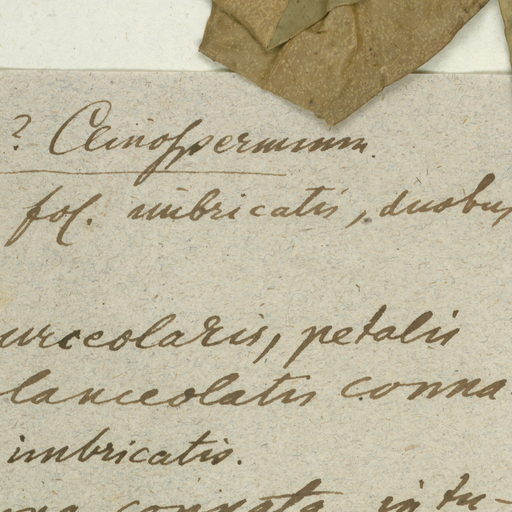 ? Clinospermum.
fol. imbricatis, duobus
urceolaris, petalis
lanceolatis conna-
imbricatis.
connata in tu-